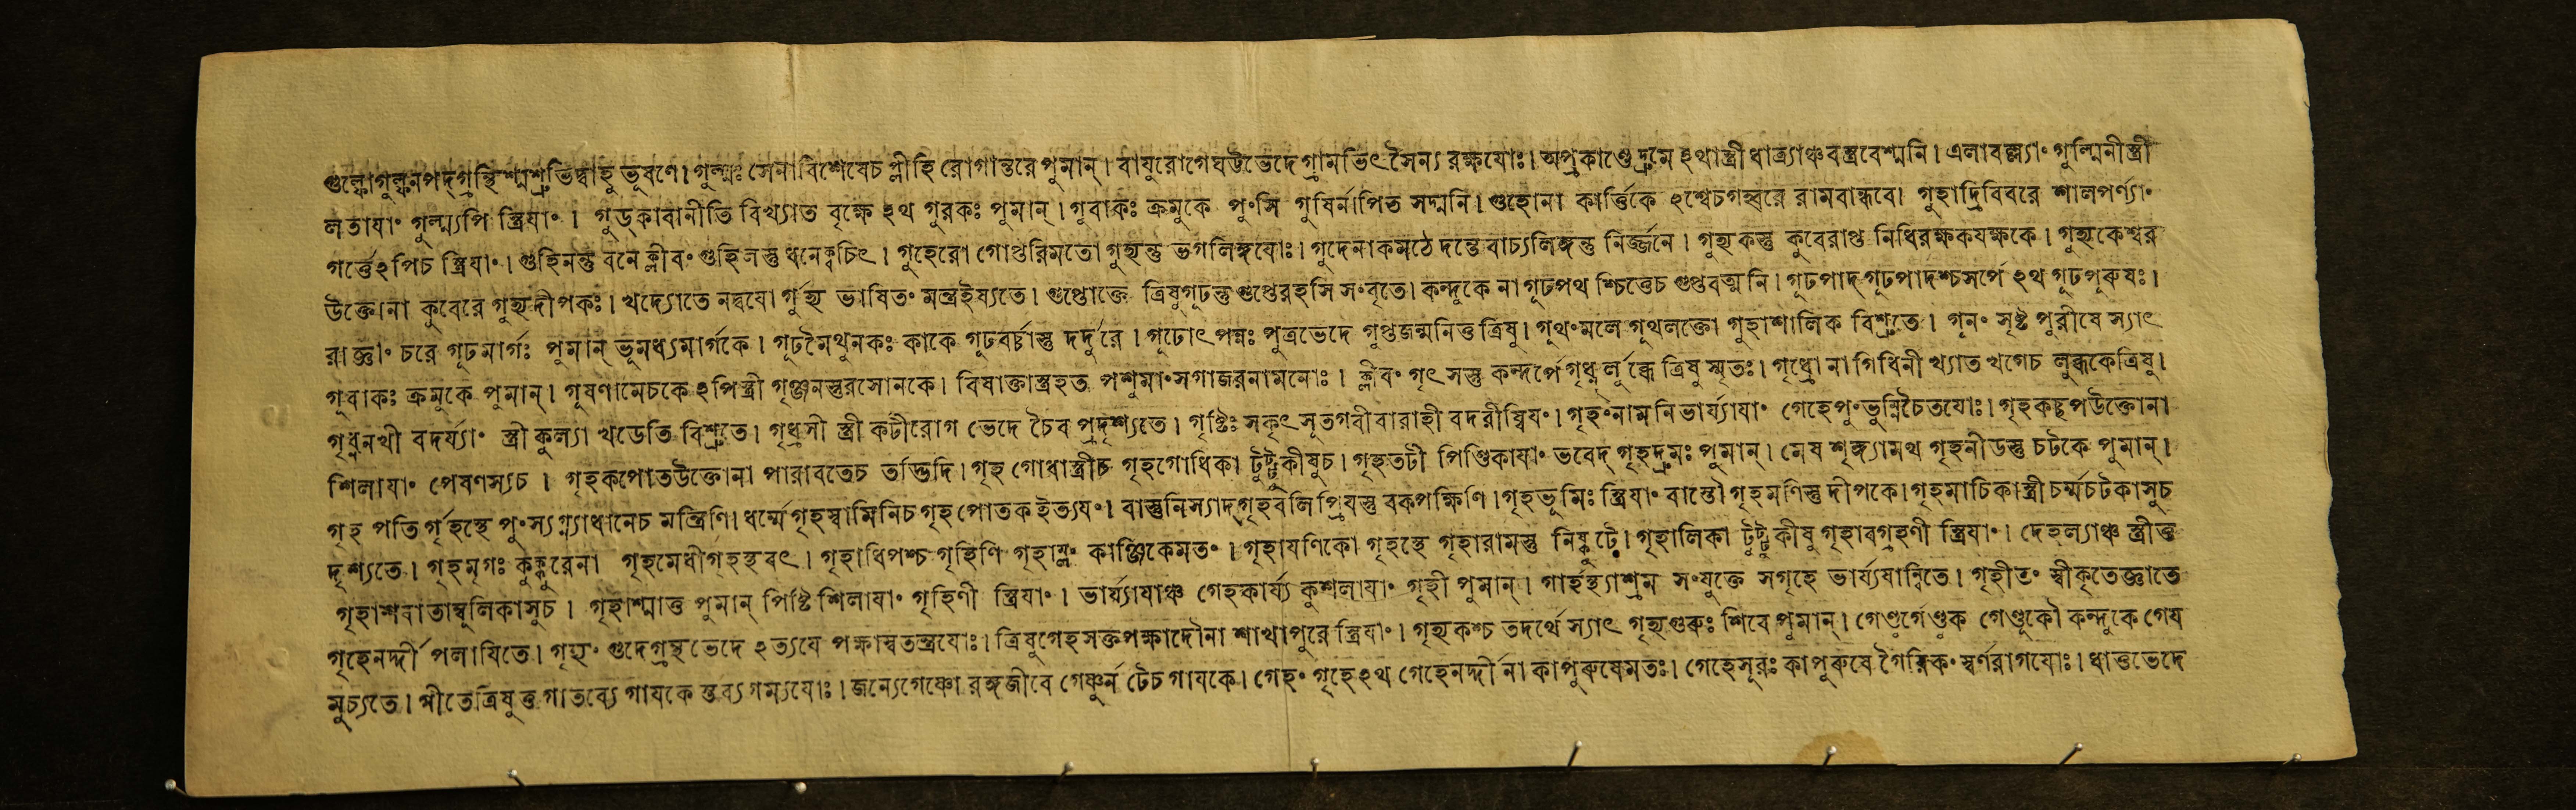 গুল্ফোগুল্ফনপদ্গ্রন্থিশ্মশ্রুভিদ্বাহু ভূষণে। গুল্মঃ সেনাবিশেষেচ প্লীহি রোগান্তরে পুমান্। বাযুরোগেঘট্টভেদে গ্রামভিৎ সৈন্য রক্ষযোঃ। অপ্রকাণ্ডেদ্রুমে ঽথাস্ত্রী ধাত্র্যাঞ্চ বস্ত্রবেশ্মনি। এলাবল্ল্যাং গুল্মিনীস্ত্রী
লতাযাং গুল্ম্যপি স্ত্রিযাং । গুড্কাবানীতি বিখ্যাত বৃক্ষে ঽথ গুরকঃ পুমান্। গূবাকঃ ক্রমুকে পুংসি গুষির্নাপিত সদ্মনি। গুহোনা কার্ত্তিকে ঽশ্বেচগহ্বরে রামবান্ধবে। গুহাদ্রিবিবরে শালপর্ণ্যাং
গর্ত্তেঽপিচ স্ত্রিযাং। গুহিনন্তু বনে ক্লীবং গুহিলন্তু ধনেক্বচিৎ। গুহেরো গোপ্তরিমতো গুহ্যন্তু ভগলিঙ্গযোঃ। গুদেনাকমঠে দম্ভে বাচ্যলিঙ্গন্তু নির্জ্জনে। গুহ্যকস্তু কুবেরাপ্ত নিধিরক্ষকযক্ষকে। গুহ্যকেশ্বর
উক্তোনা কুবেরে গুহ্যদীপকঃ। খদ্যোতে নদ্বযো র্গুহ্য ভাষিতং মন্ত্রইষ্যতে। গুপ্তোক্তে ত্রিষুগূঢন্তু গুপ্তেরহসি সংবৃতে। কন্দুকে না গূঢপথ শ্চিত্তেচ গুপ্তবর্ত্মনি। গূঢপাদ্ গূঢপাদশ্চসর্পে ঽথ গূঢপুরুষঃ।
রাজ্ঞাং চরে গূঢমার্গঃ পুমান্ ভূমধ্যমার্গকে। গূঢমৈথুনকঃ কাকে গূঢবর্চ্চাস্তু দর্দুরে। গূঢোৎপন্নঃ পুত্রভেদে গূপ্তজন্মনিতু ত্রিষু। গূথংমলে গূথলক্তো গুহাশালিক বিশ্রুতে। গূনং সৃষ্ট পুরীষে স্যাৎ
গূবাকঃ ক্রমুকে পুমান্। গূষণামেচকে ঽপিস্ত্রী গৃঞ্জনন্তুরসোনকে। বিষাক্তাস্ত্রহত পশুমাংসগাজরনামনোঃ। ক্লীবং গৃৎসস্তু কন্দর্পে গৃধ্নুর্লুব্ধে ত্রিষু স্মৃতঃ। গৃধ্রো না গিধিনী খ্যাত খগেচ লুব্ধকেত্রিষু।
গৃধ্রনখী বদর্য্যাং স্ত্রী কুল্যা খডেতি বিশ্রুতে। গৃধ্রসী স্ত্রী কটীরোগ ভেদে চৈব প্রদৃশ্যতে। গৃষ্টিঃ সকৃৎ সূতগবীবারাহী বদরীষ্বিযং। গৃহংনাম্নি ভার্য্যাযাং গেহেপুংভূম্নিচৈতযোঃ। গৃহকচ্ছপউক্তোনা
শিলাযাং পেষণস্যচ । গৃহকপোতউক্তোনা পারাবতেচ তদ্ভিদি। গৃহ গোধাস্ত্রীচ গৃহগোধিকা টুট্টুকীষুচ। গৃহতটী পিণ্ডিকাযাং ভবেদ্ গৃহদ্রুমঃ পুমান্। মেষ শৃঙ্গ্যামথ গৃহনীডস্তু চটকে পুমান্।
গৃহ পতি র্গৃহস্থে পুংস্যগ্ন্যাধানেচ মন্ত্রিণি। ধর্ম্মে গৃহস্বামিনিচ গৃহ পোতক ইত্যযং। বাস্তুনিস্যাদ্গৃহবলি প্রিযস্তু বকপক্ষিণি। গৃহভূমিঃ স্ত্রিযাং বাস্তৌ গৃহমণিস্তু দীপকে। গৃহমাচিকাস্ত্রী চর্ম্মচটকাসুচ
দৃশ্যতে। গৃহমৃগঃ কুক্কুরেনা গৃহমেধীগৃহস্থবৎ। গৃহাধিপশ্চ গৃহিণি গৃহাম্লং কাঞ্জিকেমতং। গৃহাযণিকো গৃহস্থে গৃহারামস্তু নিষ্কুটে। গৃহালিকা টুট্টুকীষু গৃহাবগ্রহণী স্ত্রিযাং। দেহল্যাঞ্চ স্ত্রীতু
গৃহাশযাতাম্বুলিকাসুচ । গৃহাশ্মাতু পুমান্ পিষ্টি শিলাযাং গৃহিণী স্ত্রিযাং। ভার্য্যাযাঞ্চ গেহকার্য্য কুশলাযাং গৃহী পুমান্। গার্হস্থ্যাশ্রম সংযুক্তে সগৃহে ভার্য্যযান্বিতে। গৃহীতং স্বীকৃতেজ্ঞাতে
গৃহেনর্দ্দী পলাযিতে। গৃহ্যং গুদেগ্রন্থভেদে ঽত্যযে পক্ষাস্বতন্ত্রযোঃ। ত্রিষুগেহসক্তপক্ষাদৌনা শাখাপুরে স্ত্রিযাং। গৃহ্যকশ্চ তদর্থে স্যাৎ গৃহ্যগুরুঃ শিবে পুমান্। গেণ্ডুর্গেণ্ডুক গেণ্ডূকৌ কন্দুকে গেয
মুচ্যতে। গীতেত্রিষুতু গাতব্যে গাযকে স্তব্যগম্যযোঃ। জন্যেগেষ্ণো রঙ্গজীবে গেষ্ণুর্নটেচ গাযকে। গেহং গৃহেঽথ গেহেনর্দ্দী না কাপুরুষেমতঃ। গেহেসূরঃ কাপুরুষে গৈরিকং স্বর্ণরাগযোঃ। ধাতুভেদে